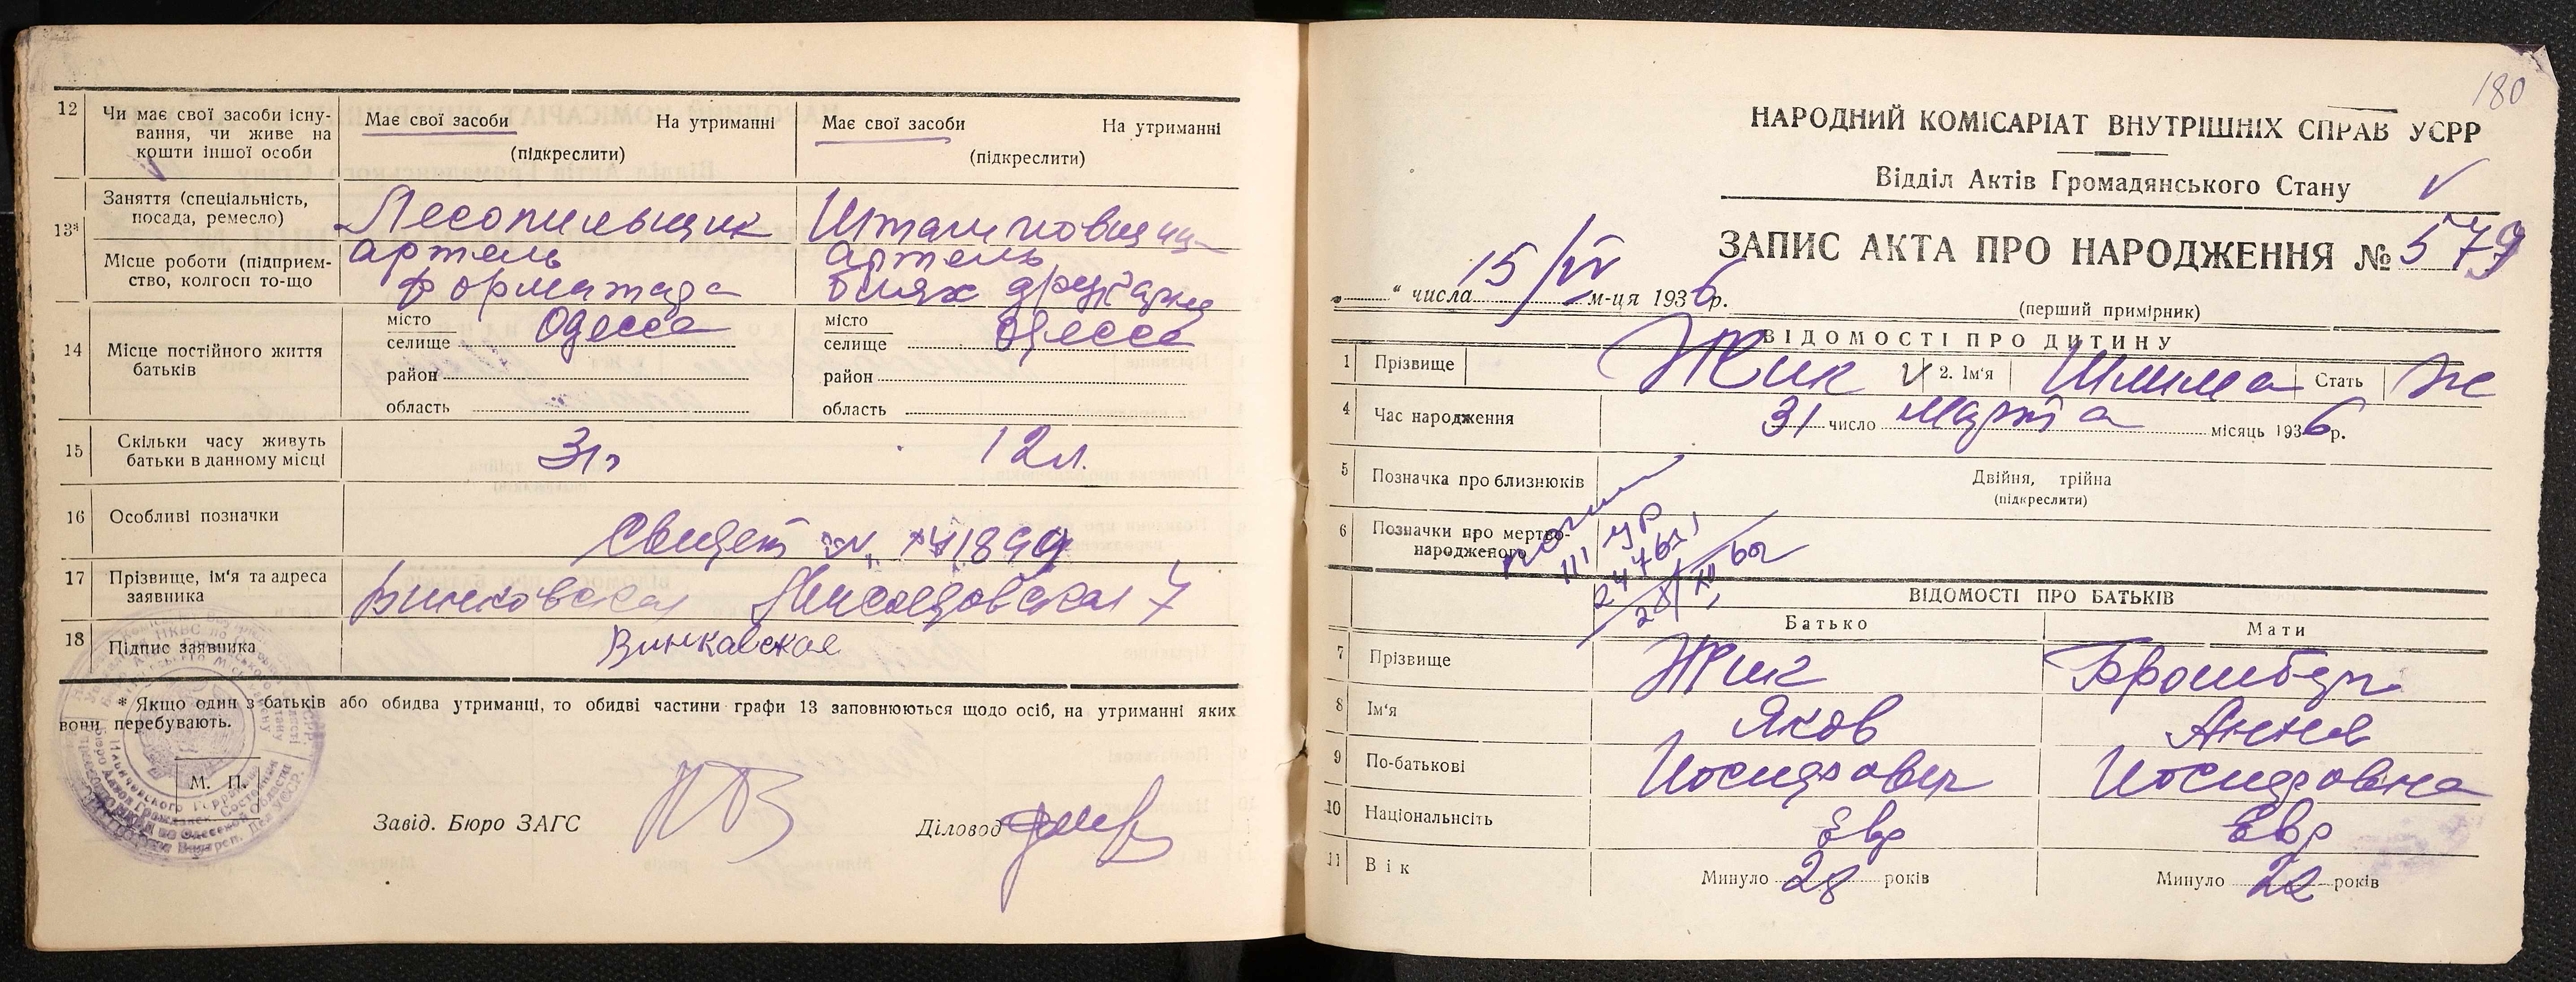 12 Чи має свої засоби існування, чи живе на кошти іншої особи
Має свої засоби На утриманні
(підкреслити)
Має свої засоби На утриманні
(підкреслити)
13* Заняття (спеціальність, посада, ремесло)
Лесопильщик
Місце роботи (підприємство, колгосп то-що
артель
артель
14 Місце постійного життя батьків
місто селище Одесса
район
область
місто селище Одесса
район
область
15 Скільки часу живуть батьки в данному місці
12 л.
16 Особливі позначки
Свидет
17 Прізвище, ім'я та адреса заявника
Винковская 7
18 Підпис заявника
Винкавская
* Якщо один з батьків або обидва утриманці, то обидві частини графи 13 заповнюються щодо осіб, на утриманні яких
вони перебувають.
М. П.
Завід. Бюро ЗАГС
Діловод
180
НАРОДНИЙ КОМІСАРІАТ ВНУТРІШНІХ СПРАВ УСРР
Відділ Актів Громадянського Стану
ЗАПИС АКТА ПРО НАРОДЖЕННЯ № 579
„ “ числа 15/IV м-ця 1936 р.
(перший примірник)
ВІДОМОСТІ ПРО ДИТИНУ
1 Прізвище Жик 2. Ім'я Шлима Стать ж
4 Час народження 31 число Марта місяць 1936 р.
5 Позначка про близнюків
Двійня, трійна
(підкреслити)
6 Позначки про мертво-народженого
ВІДОМОСТІ ПРО БАТЬКІВ
Батько Мати
7 Прізвище Жик Бромберг
8 Ім'я Яков Анна
9 По-батькові Иосифович Иосифовна
10 Національність Евр Евр
11 Вік Минуло 28 років Минуло років